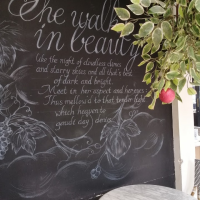 She walks
in beauty
like the night of cloudless climes
and starry skies and all that's best
of dark and bright
Meet in her aspect and her eyes
Thus mellow'd to that tender light
which heaven to
gaudy day denies